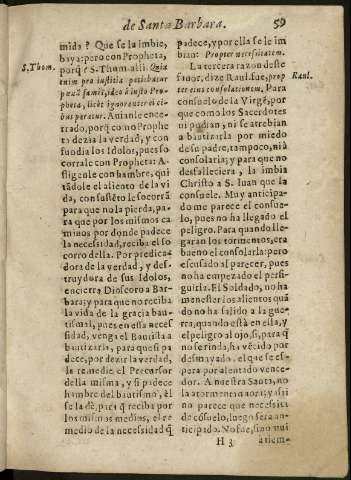 de Santa Barbara. 59
mida? Que se la imbie,
baya: pero con Propheta,
porq̃ è S. Thom. assi: Quia
enim pro iustitia patiebatur
S. Thom.
pheta, licèt ignoranter ei ci-
bus paratur. Avianle ence-
trado, porq̃ como Prophe
ta dezia la verdad, y con
fundia los Idolos, pues so
corrale con Propheta: A-
fligenle con hambre, qui
tãdole el aliento de la vi
da, con sustẽto le socorrã
para que no la pierda, pa-
ra que por los mismos ca
minos por donde padece
la necessidad, reciba el so
corro della. Por predica-
dora de la verdad, y des-
truydora de sus Idolos,
encierra Dioscoro a Bar-
bara; y para que no reciba
la vida de la gracia bau-
tismal, pues en essa neces
sidad, venga el Bautista a
bautizarla, para que si pa
dece, por dezir la verdad,
la remedie el Precursor
della misma, y si padece
hambre del bautismo, èl
se la dè, para q̃ reciba por
los mismos medios, el re
medio de la necessidad q̃
padece, y por ella se le im
bian: Propter necessitatem.
La tercera razon deste
fauor, dize Raul. fue, prop
ter eius consolationem. Para
Raul.
consuelo de la Virgẽ, por
que como los Sacerdotes
ni podian, ni se atrebian
a bautizarla por miedo
de su padre, tampoco, ni à
consolarla; y para que no
desfalleciera, la imbia
Christo a S. Iuan que la
consuele. Muy anticipa-
do me parece el consue-
lo, pues no ha llegado el
peligro. Para quando lle-
garan los tormentos, era
bueno el consolarla: pero
escusado al parecer, pues
no ha empezado el perse-
guirla. El Soldado, no ha
menester los alientos quã
do no ha salido a la gue-
rra, quando està en ella, y
el peligro al ojo, si, para q̃
no se rinda, ni vẽcido por
desmayado, el que se es-
pera por alentado vence-
dor. A nuestra Santa, no
la atormentã aora; y assi
no parece que necessita
de cõsuelo, luego serà an-
ticipado. No fue, sino mui
H 3 a tiem-